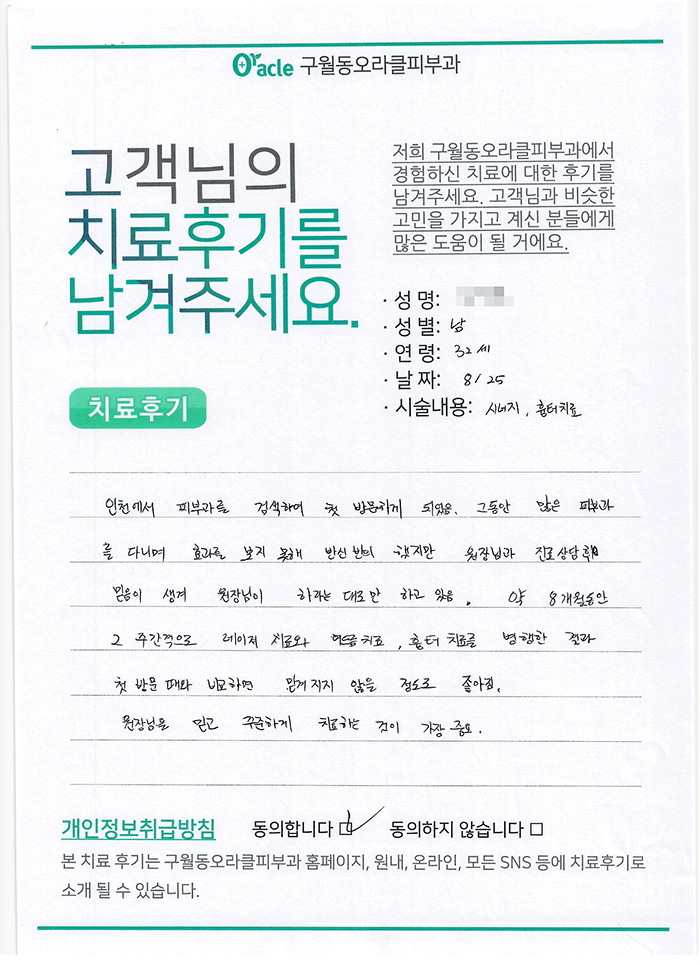 Oracle 구월동오라클피부과
고객님의
치료후기를
남겨주세요.
저희 구월동오라클피부과에서
경험하신 치료에 대한 후기를
남겨주세요. 고객님과 비슷한
고민을 가지고 계신 분들에게
많은 도움이 될 거에요.
· 성 명:
· 성 별: 남
· 연 령: 32세
· 날 짜: 8/25
· 시술내용: 시너지, 흉터치료
치료후기
인천에서 피부과를 검색하여 첫 방문하게 되었음. 그동안 많은 피부과
를 다니며 효과를 보지 못해 반신반의 했지만 원장님과 진료상담후
믿음이 생겨 원장님이 하라는 대로만 하고 있음. 약 8개월동안
2주간격으로 레이저 치료와 염증치료, 흉터 치료를 병행한 결과
첫 방문 때와 비교하면 믿겨지지 않을 정도로 좋아짐.
원장님을 믿고 꾸준하게 치료하는 것이 가장 중요.
개인정보취급방침 동의합니다 동의하지 않습니다
본 치료 후기는 구월동오라클피부과 홈페이지, 원내, 온라인, 모든 SNS 등에 치료후기로
소개 될 수 있습니다.